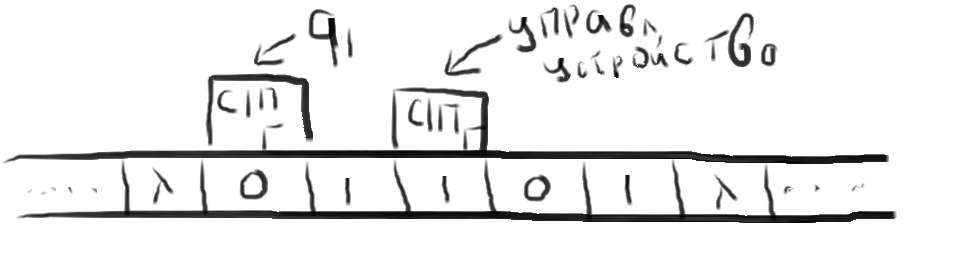 q1
управл.
устройство
СГП
СГП
..... λ 0 1 1 0 1 λ ....